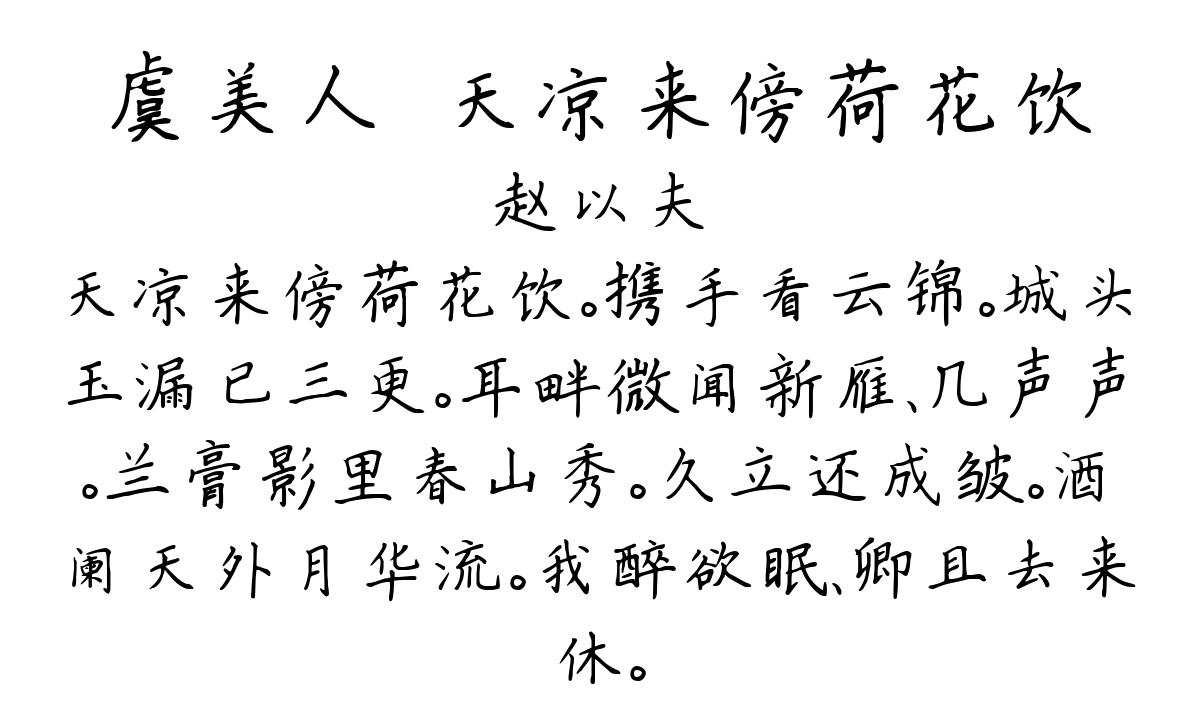 虞美人 天凉来傍荷花饮
赵以夫
天凉来傍荷花饮。携手看云锦。城头
玉漏已三更。耳畔微闻新雁、几声声
。兰膏影里春山秀。久立还成皱。酒
阑天外月华流。我醉欲眠、卿且去来
休。